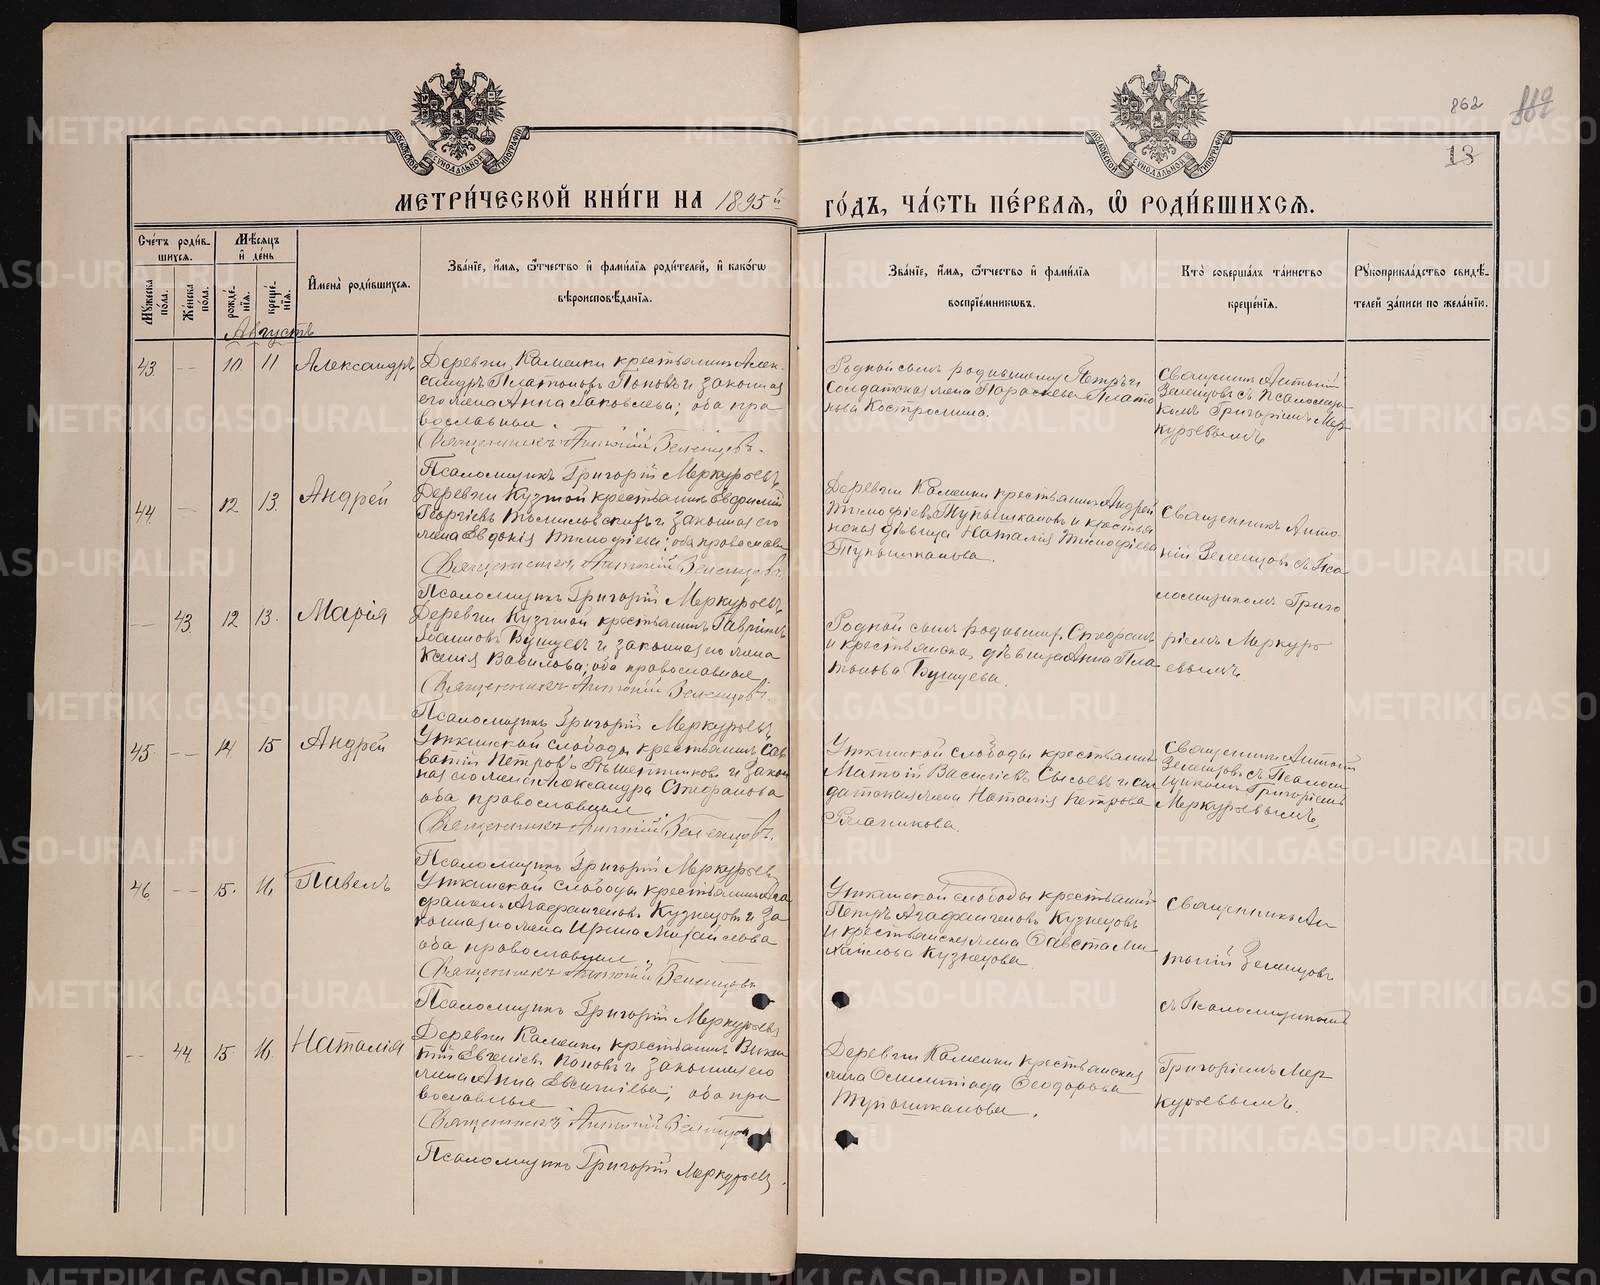 862
18
МЕТРИЧЕСКОЙ КНИГИ НА 1895й ГОДЪ, ЧАСТЬ ПЕРВАЯ, Ѿ РОДИВШИХСЯ.
МОСКОВСКОЙ СѴНОДАЛЬНОЙ ТИПОГРАФІИ
МОСКОВСКОЙ СѴНОДАЛЬНОЙ ТИПОГРАФІИ
Счетъ родив-
шихся.
Мужеска пола.
Женска пола.
Мѣсяцъ и день
рожденія.
крещенія.
Имена родившихся.
Званіе, имя, отчество и фамилія родителей, и какогѡ
вѣроисповѣданія.
Званіе, имя, отчество и фамилія
воспріемниковъ.
Кто совершалъ таинство
крещенія.
Рукоприкладство свидѣ-
телей записи по желанію.
Августъ
43. -- 10 11 Александръ
Деревни Каменки крестьянинъ Алек-
сандръ Платоновъ Поповъ и законная
его жена Анна Яковлева; оба пра
вославные.
Священникъ Антоній Зеленцовъ.
Псаломщикъ Григорій Меркурьевъ
Родной сынъ родившему Петръ и
Солдатская жена Параскева Плато
нова Костромина.
Священникъ Антоній
Зеленцовъ съ Псаломщи
комъ Григоріемъ Мер-
курьевымъ
44. -- 12. 13. Андрей
Деревни Кузиной крестьянинъ Евфимій
Георгіевъ и законная его
жена Евдокія Тимофіева; оба православн
Священникъ Антоній Зеленцовъ.
Псаломщикъ Григорій Меркурьевъ
Деревни Каменки крестьянинъ Андрей
Тимофіевъ Тупышкановъ и крестья
нская дѣвица Наталія Тимофіева
Тупышканова.
Священникъ Анто
ній Зеленцовъ съ Пса
ломщикомъ Григо
ріемъ Меркурь
евымъ
-- 43. 12 13. Марія
Деревни Кузиной крестьянинъ Гавріилъ
Іоанновъ и законная его жена
Ксенія Вавилова; оба православные
Священникъ Антоній Зеленцовъ
Псаломщикъ Григорій Меркурьевъ
Родной сынъ родившаг. Стефанъ
и крестьянска дѣвица Анна Пла
тонова
45. -- 14. 15 Андрей
Уткинской слободы крестьянинъ Сав
ватій Петровъ Рѣшетниковъ и закон
ная его жена Александра Стефанова
оба православные
Священникъ Антоній Зеленцовъ.
Псаломщикъ Григорій Меркурьевъ
Уткинской слободы крестьянинъ
Матѳій Василіевъ Сысоевъ и сол
датская жена Наталія Петрова
Священникъ Антоній
Зеленцовъ съ Псаломщ
щикомъ Григоріемъ
Меркурьевымъ
46. -- 15. 16. Павелъ
Уткинской слободы крестьянинъ Ага
фангелъ Агафангеловъ Кузнецовъ и за
конная его жена Ирина Михайлова
оба православные
Священникъ Антоній Зеленцовъ
Псаломщикъ Григорій Меркурьевъ
Уткинской слободы крестьянинъ
Петръ Агафангеловъ Кузнецовъ
и крестьянская жена Фавста Ми
хайлова Кузнецова
Священникъ Ан
тоній Зеленцовъ
съ Псаломщикомъ
Григоріемъ Мер
курьевымъ.
-- 44. 15. 16. Наталія
Деревни Каменки крестьянинъ Викен
тій Евгеніевъ Поповъ и законная его
жена Анна Евгеніева; оба пра
вославные
Священникъ Антоній Зеленцовъ
Псаломщикъ Григорій Меркурьевъ.
Деревни Каменки крестьянская
жена Олимпіада Ѳеодорова
Тупышканова.
METRIKI.GASO-URAL.RU